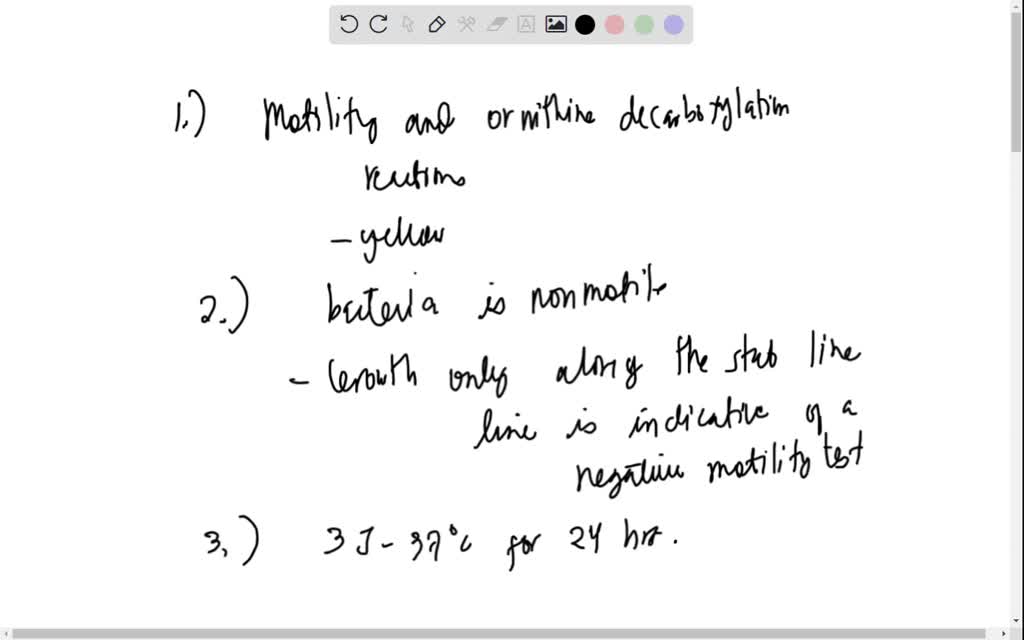 1.) Motility and ornithine decarboxylation
reactions
- yellow
2.) bacteria is nonmotile
- Growth only along the stab line
line is indicative of a
negative motility test
3.) 35-37°c for 24 hrs.